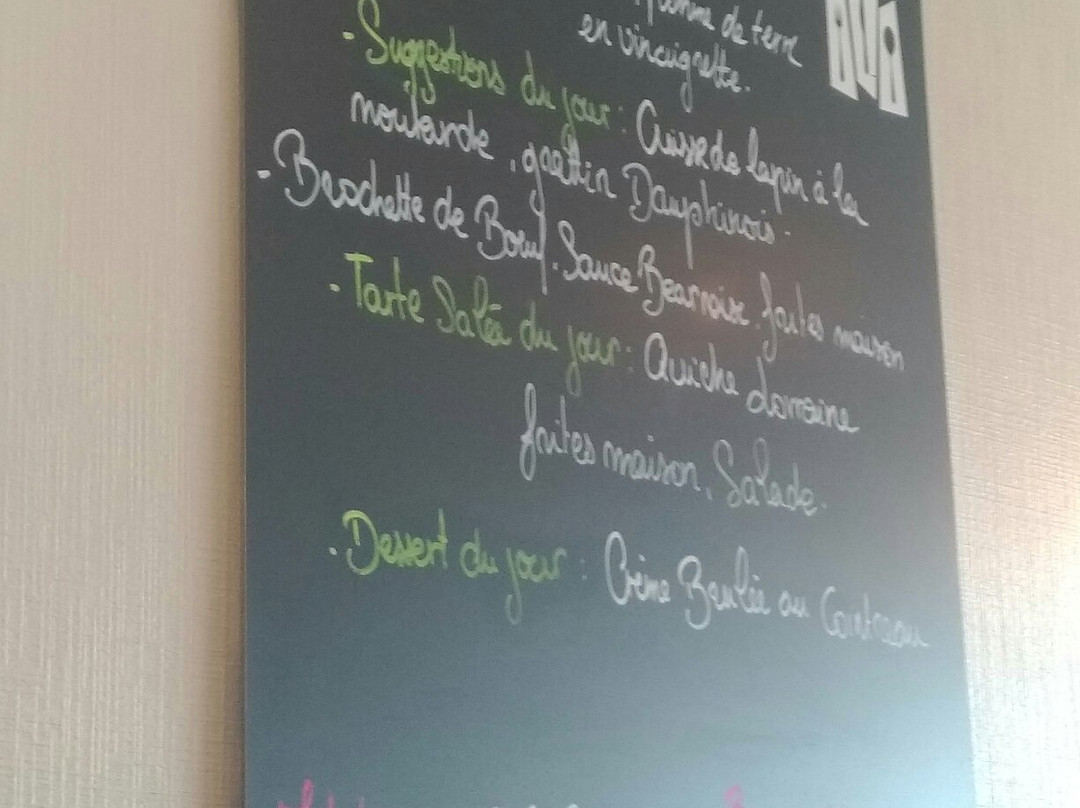 pomme de terre
en vinaigrette.
- Suggestions du jour : Cuisse de lapin à la
moutarde, gratin Dauphinois.
- Brochette de Boeuf. Sauce Bearnaise, faites maison
- Tarte Salée du jour : Quiche Lorraine
faites maison, Salade.
- Dessert du jour : Crème Brulée au Cointreau